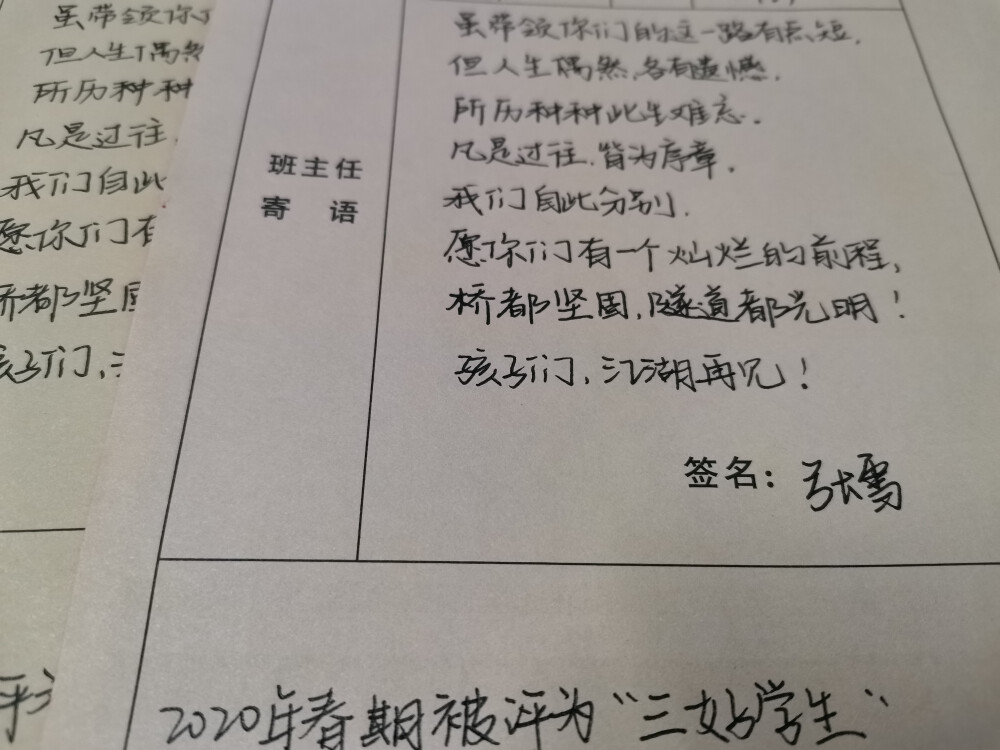 虽带领你们的这一路有点短,
但人生偶然,各有遗憾,
所历种种此生难忘。
凡是过往,皆为序章。
我们自此分别,
愿你们有一个灿烂的前程,
桥都坚固,隧道都光明!
孩子们,江湖再见!
班主任
寄 语
签名:张雪
2020年春期被评为“三好学生”
虽带领你们
但人生偶然
所历种种
凡是过往,
我们自此
愿你们有
桥都坚固
孩子们,江